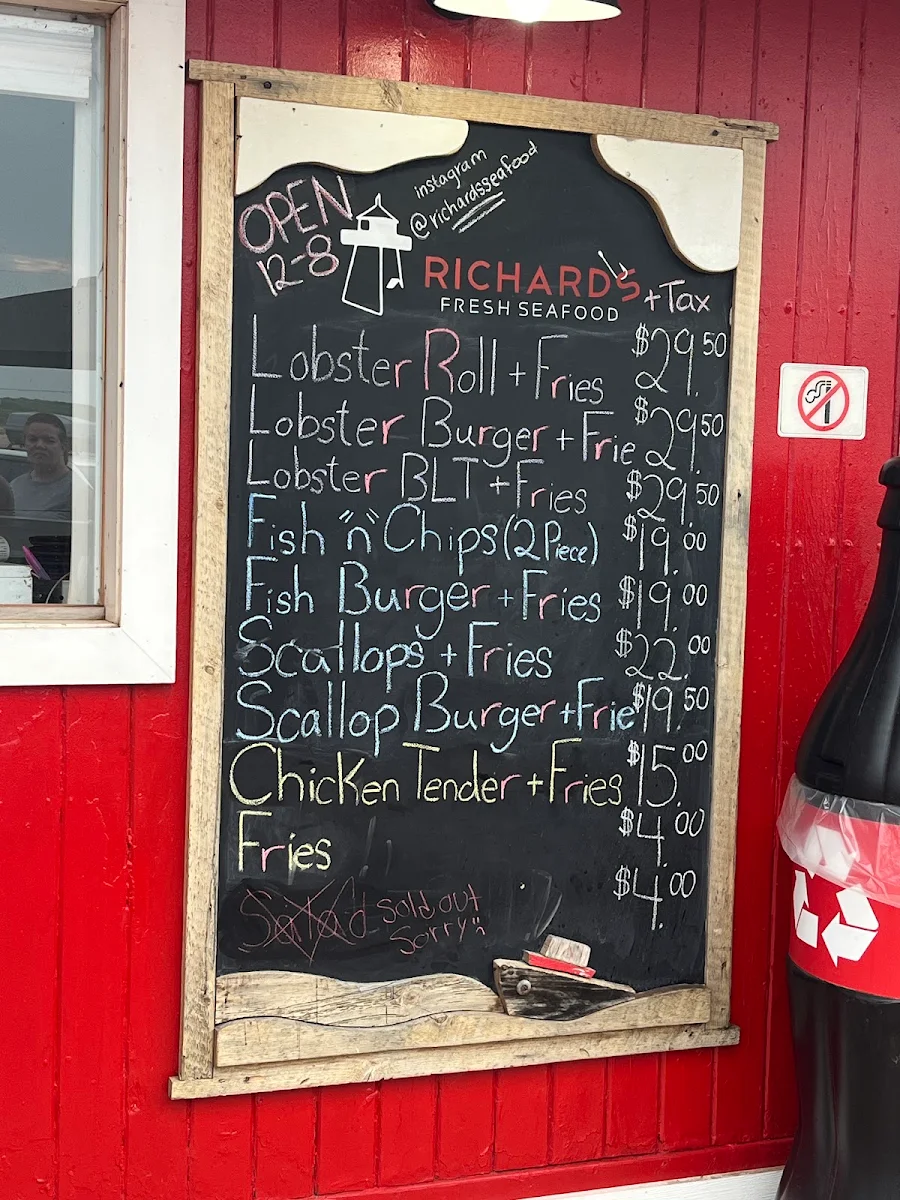 instagram
@richardsseafood
OPEN
12-8
RICHARDS
FRESH SEAFOOD
+Tax
Lobster Roll + Fries $29.50
Lobster Burger + Frie $29.50
Lobster BLT + Fries $29.50
Fish "n" Chips (2 Piece) $19.00
Fish Burger + Fries $19.00
Scallops + Fries $22.00
Scallop Burger + Frie $19.50
Chicken Tender + Fries $15.00
Fries $4.00
Salad sold out $4.00
Sorry":